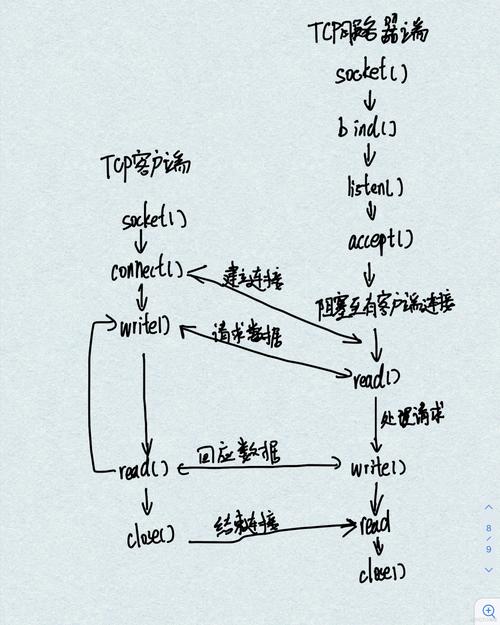 TCP服务器端
socket()
bind()
listen()
accept()
阻塞至有客户端连接
read()
处理请求
write()
read
close()
TCP客户端
socket()
connect()
write()
read()
close()
建立连接
请求数据
回应数据
结束连接
8
/
9